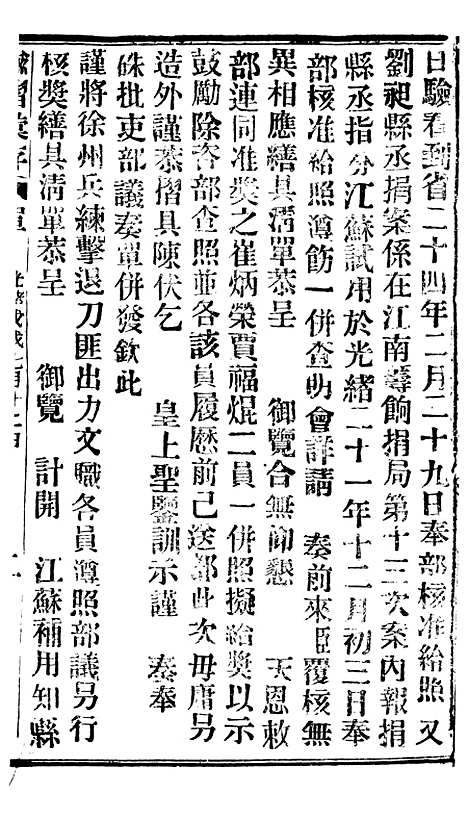 日驗看到省二十四年二月二十九日奉部核准給照又
劉昶縣丞捐案係在江南籌餉捐局第十三次案內報捐
縣丞指分江蘇試用於光緒二十一年十二月初三日奉
部核准給照遵飭一併查明會詳請　奏前來臣覆核無
異相應繕具清單恭呈　御覽合無仰懇　天恩敕
部連同准獎之崔炳榮賈福焜二員一併照擬給獎以示
鼓勵除咨部查照並各該員履歷前已送部此次毋庸另
造外謹恭摺具陳伏乞　皇上聖鑒訓示謹　奏奉
硃批吏部議奏單併發欽此
謹將徐州兵練擊退刀匪出力文職各員遵照部議另行
核獎繕具清單恭呈　御覽　計開　江蘇補用知縣
諭摺彙存　光緒戊戌七月十二日